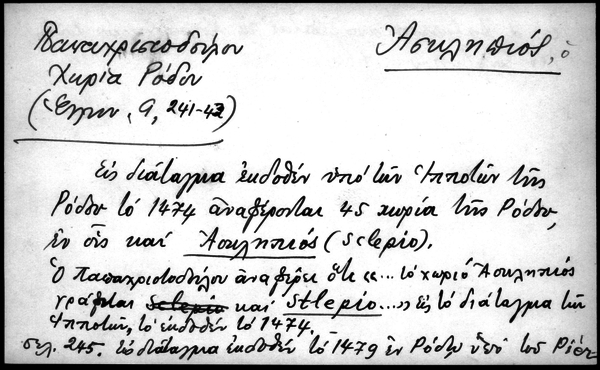 Παπαχριστοδούλου
Ἀσκληπιός, ὁ
Χωρία Ρόδου
241-42)
Εἰς διάταγμα ἐκδοθέν ὑπό τῶν Ἱπποτῶν τῆς
Ρόδου τό 1474 ἀναφέρονται 45 χωρία τῆς Ρόδου,
ἐν οἷς καί Ἀσκληπιός (Sclepio).
Ὁ Παπαχριστοδούλου ἀναφέρει ὅτι «... τό χωριό Ἀσκληπιός
γράφεται Sclepio καί Stlepio...» εἰς τό διάταγμα τῶν
Ἱπποτῶν, τό ἐκδοθέν τό 1474.
σελ. 245. διάταγμα ἐκδοθέν τό 1479 ἐν Ρόδῳ ὑπό τοῦ